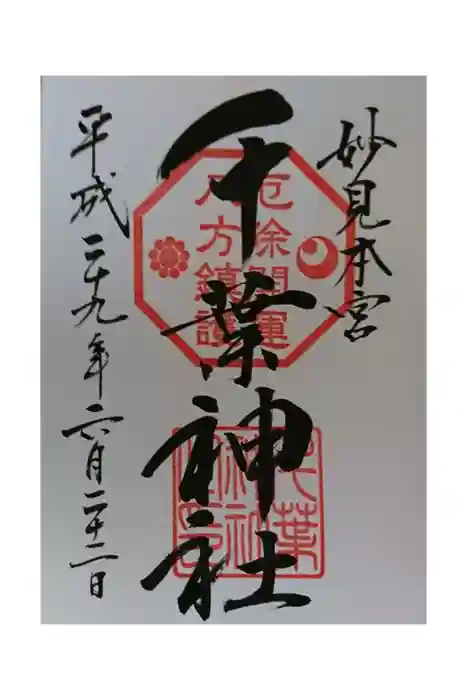 妙見本宮
千葉神社
厄除開運
八方鎮護
平成二十九年六月二十二日